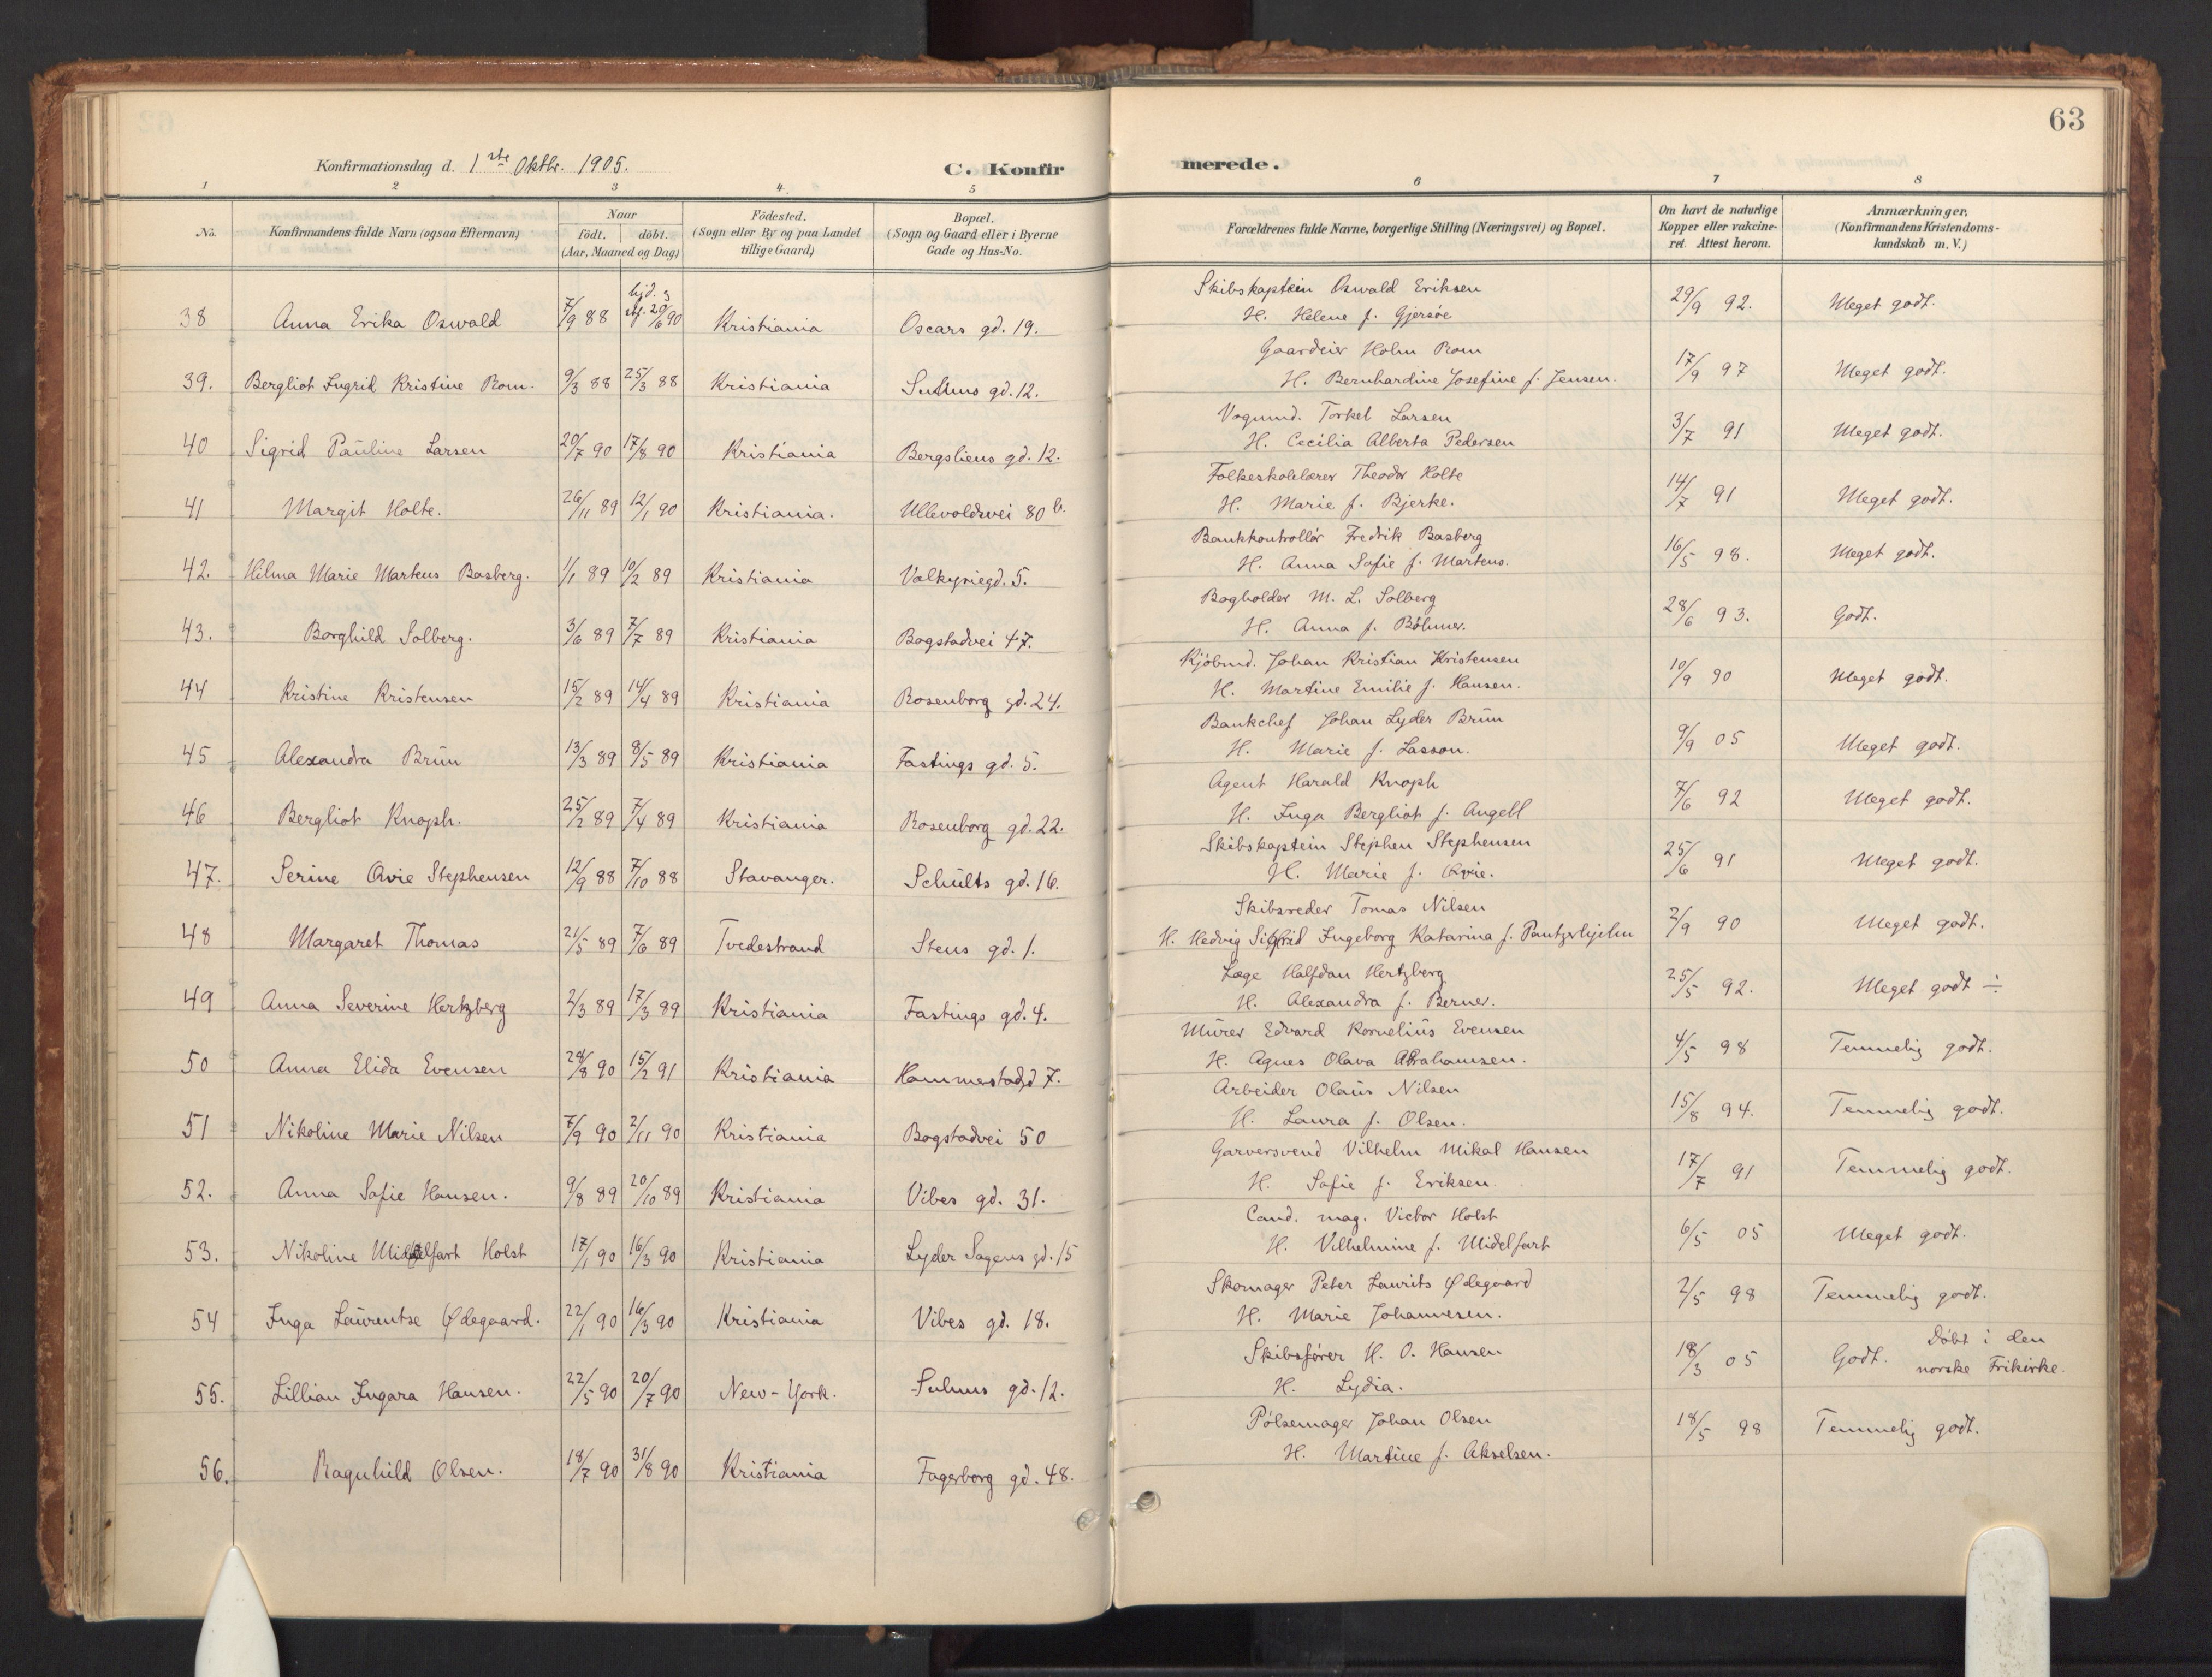 63
Konfirmationsdag d. 1ste Oktbr. 1905.
C. Konfirmerede.
1 2 3 4. 5 6 7 8
No.
Konfirmandens fulde Navn (ogsaa Efternavn)
Naar
födt. döbt.
(Aar, Maaned og Dag)
Födested.
(Sogn eller By og paa Landet
tillige Gaard)
Bopæl.
(Sogn og Gaard eller i Byerne
Gade og Hus-No.
Forældrenes fulde Navne, borgerlige Stilling (Næringsvei) og Bopæl.
Om havt de naturlige
Kopper eller vakcine-
ret. Attest herom.
Anmærkninger.
(Konfirmandens Kristendoms-
kundskab m. V.)
38 Anna Erika Oswald 7/9 88 hjd. stf. 20/6 90 Kristiania Oscars gd. 19.
Skibskaptein Oswald Eriksen
H. Helene f. Gjersøe 29/9 92. Meget godt.
39. Bergliot Ingrid Kristine Rom. 9/3 88 25/3 88 Kristiania Suhms gd. 12.
Gaardeier Holm Rom
H. Bernhardine Josefine f. Jensen. 17/9 97 Meget godt.
40 Sigrid Pauline Larsen 20/7 90 17/8 90 Kristiania Bergsliens gd. 12.
Vognmd. Torkel Larsen
H. Cecilia Alberta Pedersen 3/7 91 Meget godt.
41 Margit Holte. 26/11 89 12/1 90 Kristiania. Ullevoldsvei 80 b.
Folkeskolelærer Theodor Holte
H. Marie f. Bjerke. 14/7 91 Meget godt.
42. Hilma Marie Martens Basberg. 1/1 89 10/2 89 Kristiania Valkyriegd. 5.
Bankkontrollör Fredrik Basberg
H. Anna Sofie f. Martens. 16/5 98. Meget godt.
43. Borghild Solberg. 3/6 89 7/7 89 Kristiania Bogstadvei 47.
Bogholder M. L. Solberg
H. Anna f. Böhmer. 28/6 93. Godt.
44 Kristine Kristensen 15/2 89 14/4 89 Kristiania Rosenborg gd. 24.
Kjöbmd. Johan Kristian Kristensen
H. Martine Emilie f. Hansen. 10/9 90 Meget godt.
45 Alexandra Brun 13/3 89 8/5 89 Kristiania Fastings gd. 5.
Bankchef Johan Lyder Brun
H. Marie f. Lasson. 9/9 05 Meget godt.
46 Bergliot Knoph. 25/2 89 7/4 89 Kristiania Rosenborg gd. 22.
Agent Harald Knoph
H. Inga Bergliot f. Angell 7/6 92 Meget godt.
47. Serine Qvie Stephensen 12/9 88 7/10 88 Stavanger. Schults gd. 16.
Skibskaptein Stephen Stephensen
H. Marie f. Qvie. 25/6 91 Meget godt.
48 Margaret Thomas 21/5 89 7/6 89 Tvedestrand Stens gd. 1.
Skibsreder Tomas Nilsen
H. Hedvig Sigfrid Ingeborg Katarina f. Pantzerhjelm 2/9 90 Meget godt.
49 Anna Severine Hertzberg 2/3 89 17/3 89 Kristiania Fastings gd. 4.
Læge Halfdan Hertzberg
H. Alexandra f. Berner. 25/5 92. Meget godt ÷
50 Anna Elida Evensen 28/8 90 15/2 91 Kristiania Hammerstadgd 7.
Murer Edvard Kornelius Evensen
H. Agnes Olava Abrahamsen. 4/5 98 Temmelig godt.
51 Nikoline Marie Nilsen 7/9 90 2/11 90 Kristiania Bogstadvei 50
Arbeider Olaus Nilsen
H. Laura f. Olsen. 15/8 94. Temmelig godt.
52. Anna Sofie Hansen. 9/8 89 20/10 89 Kristiania Vibes gd. 31.
Garversvend Vilhelm Mikal Hansen
H. Sofie f. Eriksen. 17/7 91 Temmelig godt.
53. Nikoline Midelfart Holst 17/1 90 16/3 90 Kristiania Lyder Sagens gd. 15
Cand. mag. Victor Holst
H. Vilhelmine f. Midelfart 6/5 05 Meget godt.
54 Inga Laurentse Ødegaard. 22/1 90 16/3 90 Kristiania Vibes gd. 18.
Skomager Peter Laurits Ødegaard
H. Marie Johannesen. 2/5 98 Temmelig godt.
55. Lillian Ingara Hansen. 22/5 90 20/7 90 New-York. Suhms gd. 12.
Skibsfører H. O. Hansen
H. Lydia. 18/3 05 Godt. Döbt i den
norske Frikirke.
56. Ragnhild Olsen. 18/7 90 31/8 90 Kristiania Fagerborg gd. 48.
Pölsemager Johan Olsen
H. Martine f. Akselsen. 18/5 98 Temmelig godt.